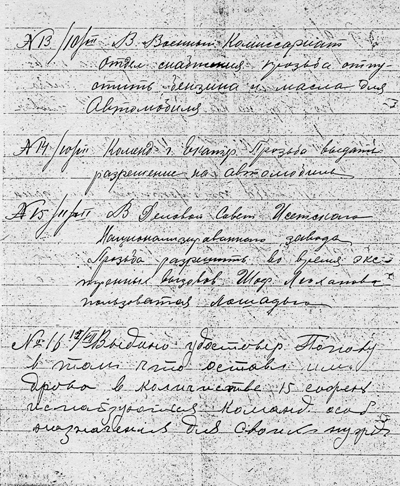 №13/10/VII В Военный Комиссариат
отдел снабжения просьба отпу-
стить бензина и масла для
Автомобиля
№14/10/VII Команд. г. Екатер. Просьба выдать
разрешение на автомобиль
№15/11/VII В Деловой Совет Исетского
Национализированного завода
Просьба разрешить во время экс-
тренных вызовов Шоф.
пользоваться Лошадью
№16 12/VII Выдано удостовер. Попову
в том что оставш. ими
дрова в количестве 15 сажень
Команд. особ.
назначения для своих нужд